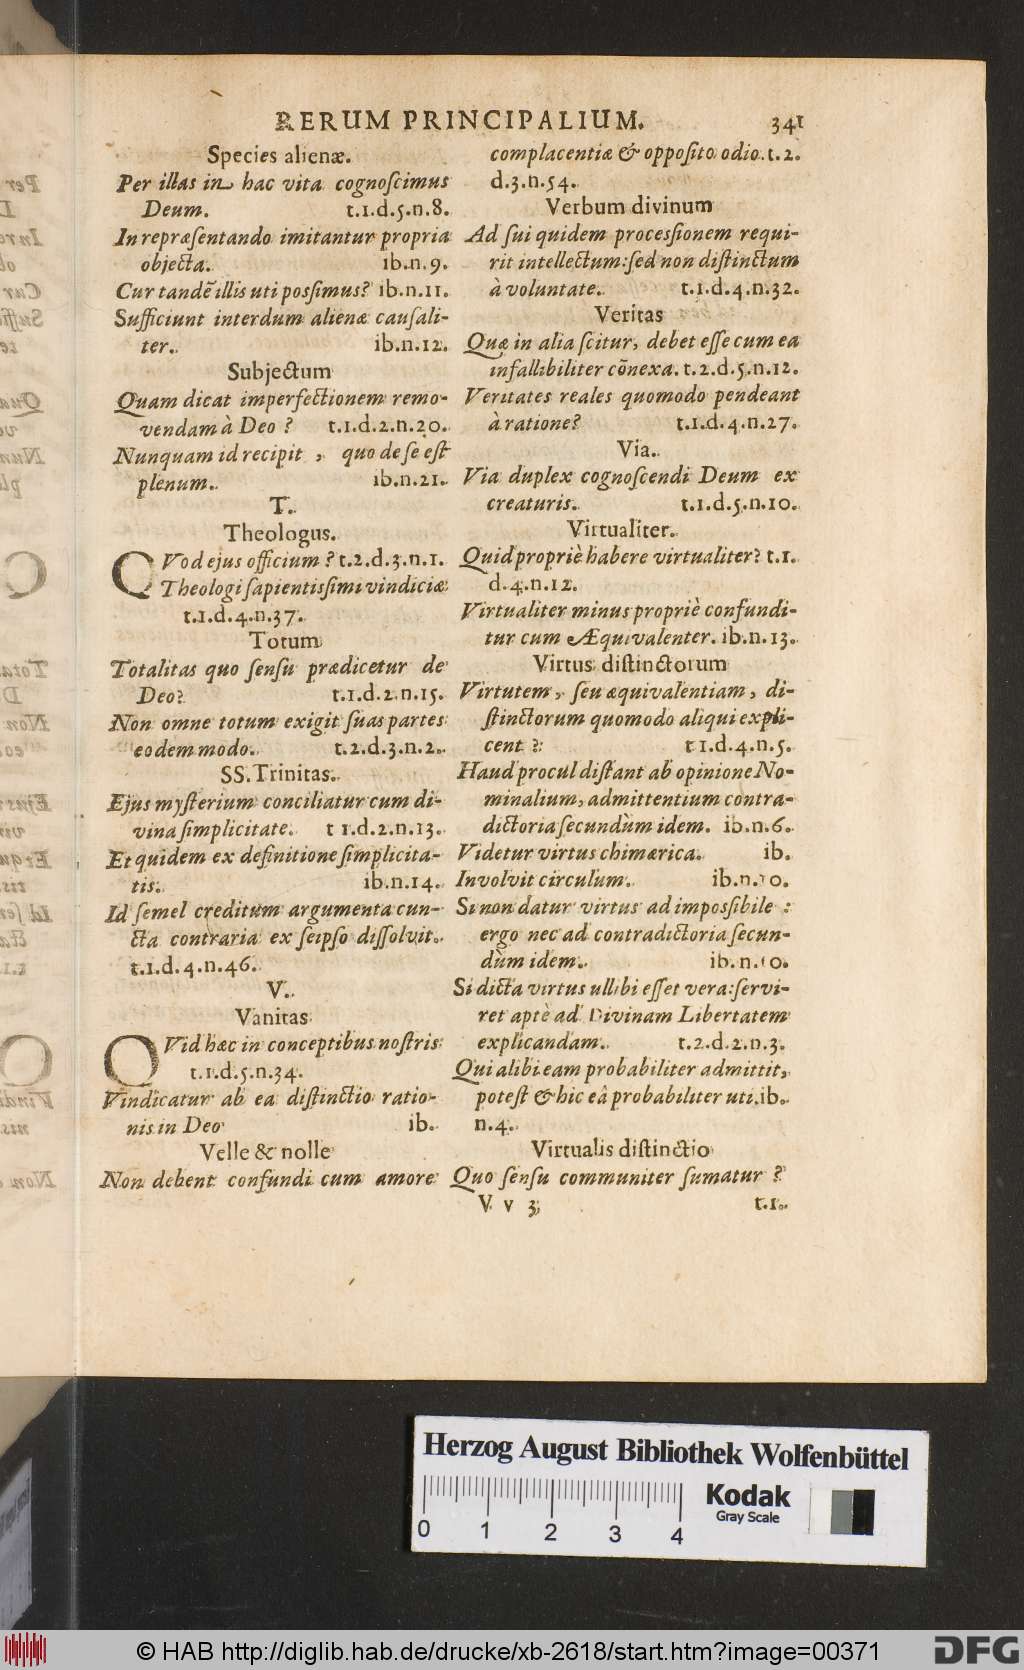 RERUM PRINCIPALIUM. 341
Species alienæ.
Per illas in hac vita cognoſcimus
Deum. t.1.d.5.n.8.
In repræſentando imitantur propria
objecta. ib.n.9.
Cur tandẽ illis uti poſſimus? ib.n.11.
Sufficiunt interdum alienæ cauſali-
ter. ib.n.12.
Subjectum
Quam dicat imperfectionem remo-
vendam à Deo ? t.1.d.2.n.20.
Nunquam id recipit , quo de ſe eſt
plenum. ib.n.21.
T.
Theologus.
QVod ejus officium ? t.2.d.3.n.1.
Theologi ſapientiſſimi vindiciæ
t.1.d.4.n.37.
Totum
Totalitas quo ſenſu prædicetur de
Deo? t.1.d.2.n.15.
Non omne totum exigit ſuas partes
eodem modo. t.2.d.3.n.2.
SS. Trinitas.
Ejus myſterium conciliatur cum di-
vina ſimplicitate. t 1.d.2.n.13.
Et quidem ex definitione ſimplicita-
tis. ib.n.14.
Id ſemel creditum argumenta cun-
cta contraria ex ſeipſo diſſolvit.
t.1.d.4.n.46.
V.
Vanitas
QVid hæc in conceptibus noſtris
t.1.d.5.n.34.
Vindicatur ab ea diſtinctio ratio-
nis in Deo ib.
Velle & nolle
Non debent confundi cum amore
complacentiæ & oppoſito odio. t.2.
d.3.n.54.
Verbum divinum
Ad ſui quidem proceſſionem requi-
rit intellectum: ſed non diſtinctum
à voluntate. t.1.d.4.n.32.
Veritas
Quæ in alia ſcitur, debet eſſe cum ea
infallibiliter cõnexa. t.2.d.5.n.12.
Veritates reales quomodo pendeant
à ratione? t.1.d.4.n.27.
Via.
Via duplex cognoſcendi Deum ex
creaturis. t.1.d.5.n.10.
Virtualiter.
Quid propriè habere virtualiter? t.1.
d.4.n.12.
Virtualiter minus propriè confundi-
tur cum Æquivalenter. ib.n.13.
Virtus diſtinctorum
Virtutem, ſeu æquivalentiam, di-
ſtinctorum quomodo aliqui expli-
cent ? t 1.d.4.n.5.
Haud procul diſtant ab opinione No-
minalium, admittentium contra-
dictoria ſecundùm idem. ib.n.6.
Videtur virtus chimærica. ib.
Involvit circulum. ib.n.10.
Si non datur virtus ad impoſſibile :
ergo nec ad contradictoria ſecun-
dùm idem. ib.n.10.
Si dicta virtus ullibi eſſet vera: ſervi-
ret aptè ad Divinam Libertatem
explicandam. t.2.d.2.n.3.
Qui alibi eam probabiliter admittit,
poteſt & hic eâ probabiliter uti. ib.
n.4.
Virtualis diſtinctio
Quo ſenſu communiter ſumatur ?
V v 3 t.1.
Herzog August Bibliothek Wolfenbüttel
0 1 2 3 4
Kodak
Gray Scale
© HAB http://diglib.hab.de/drucke/xb-2618/start.htm?image=00371
DFG